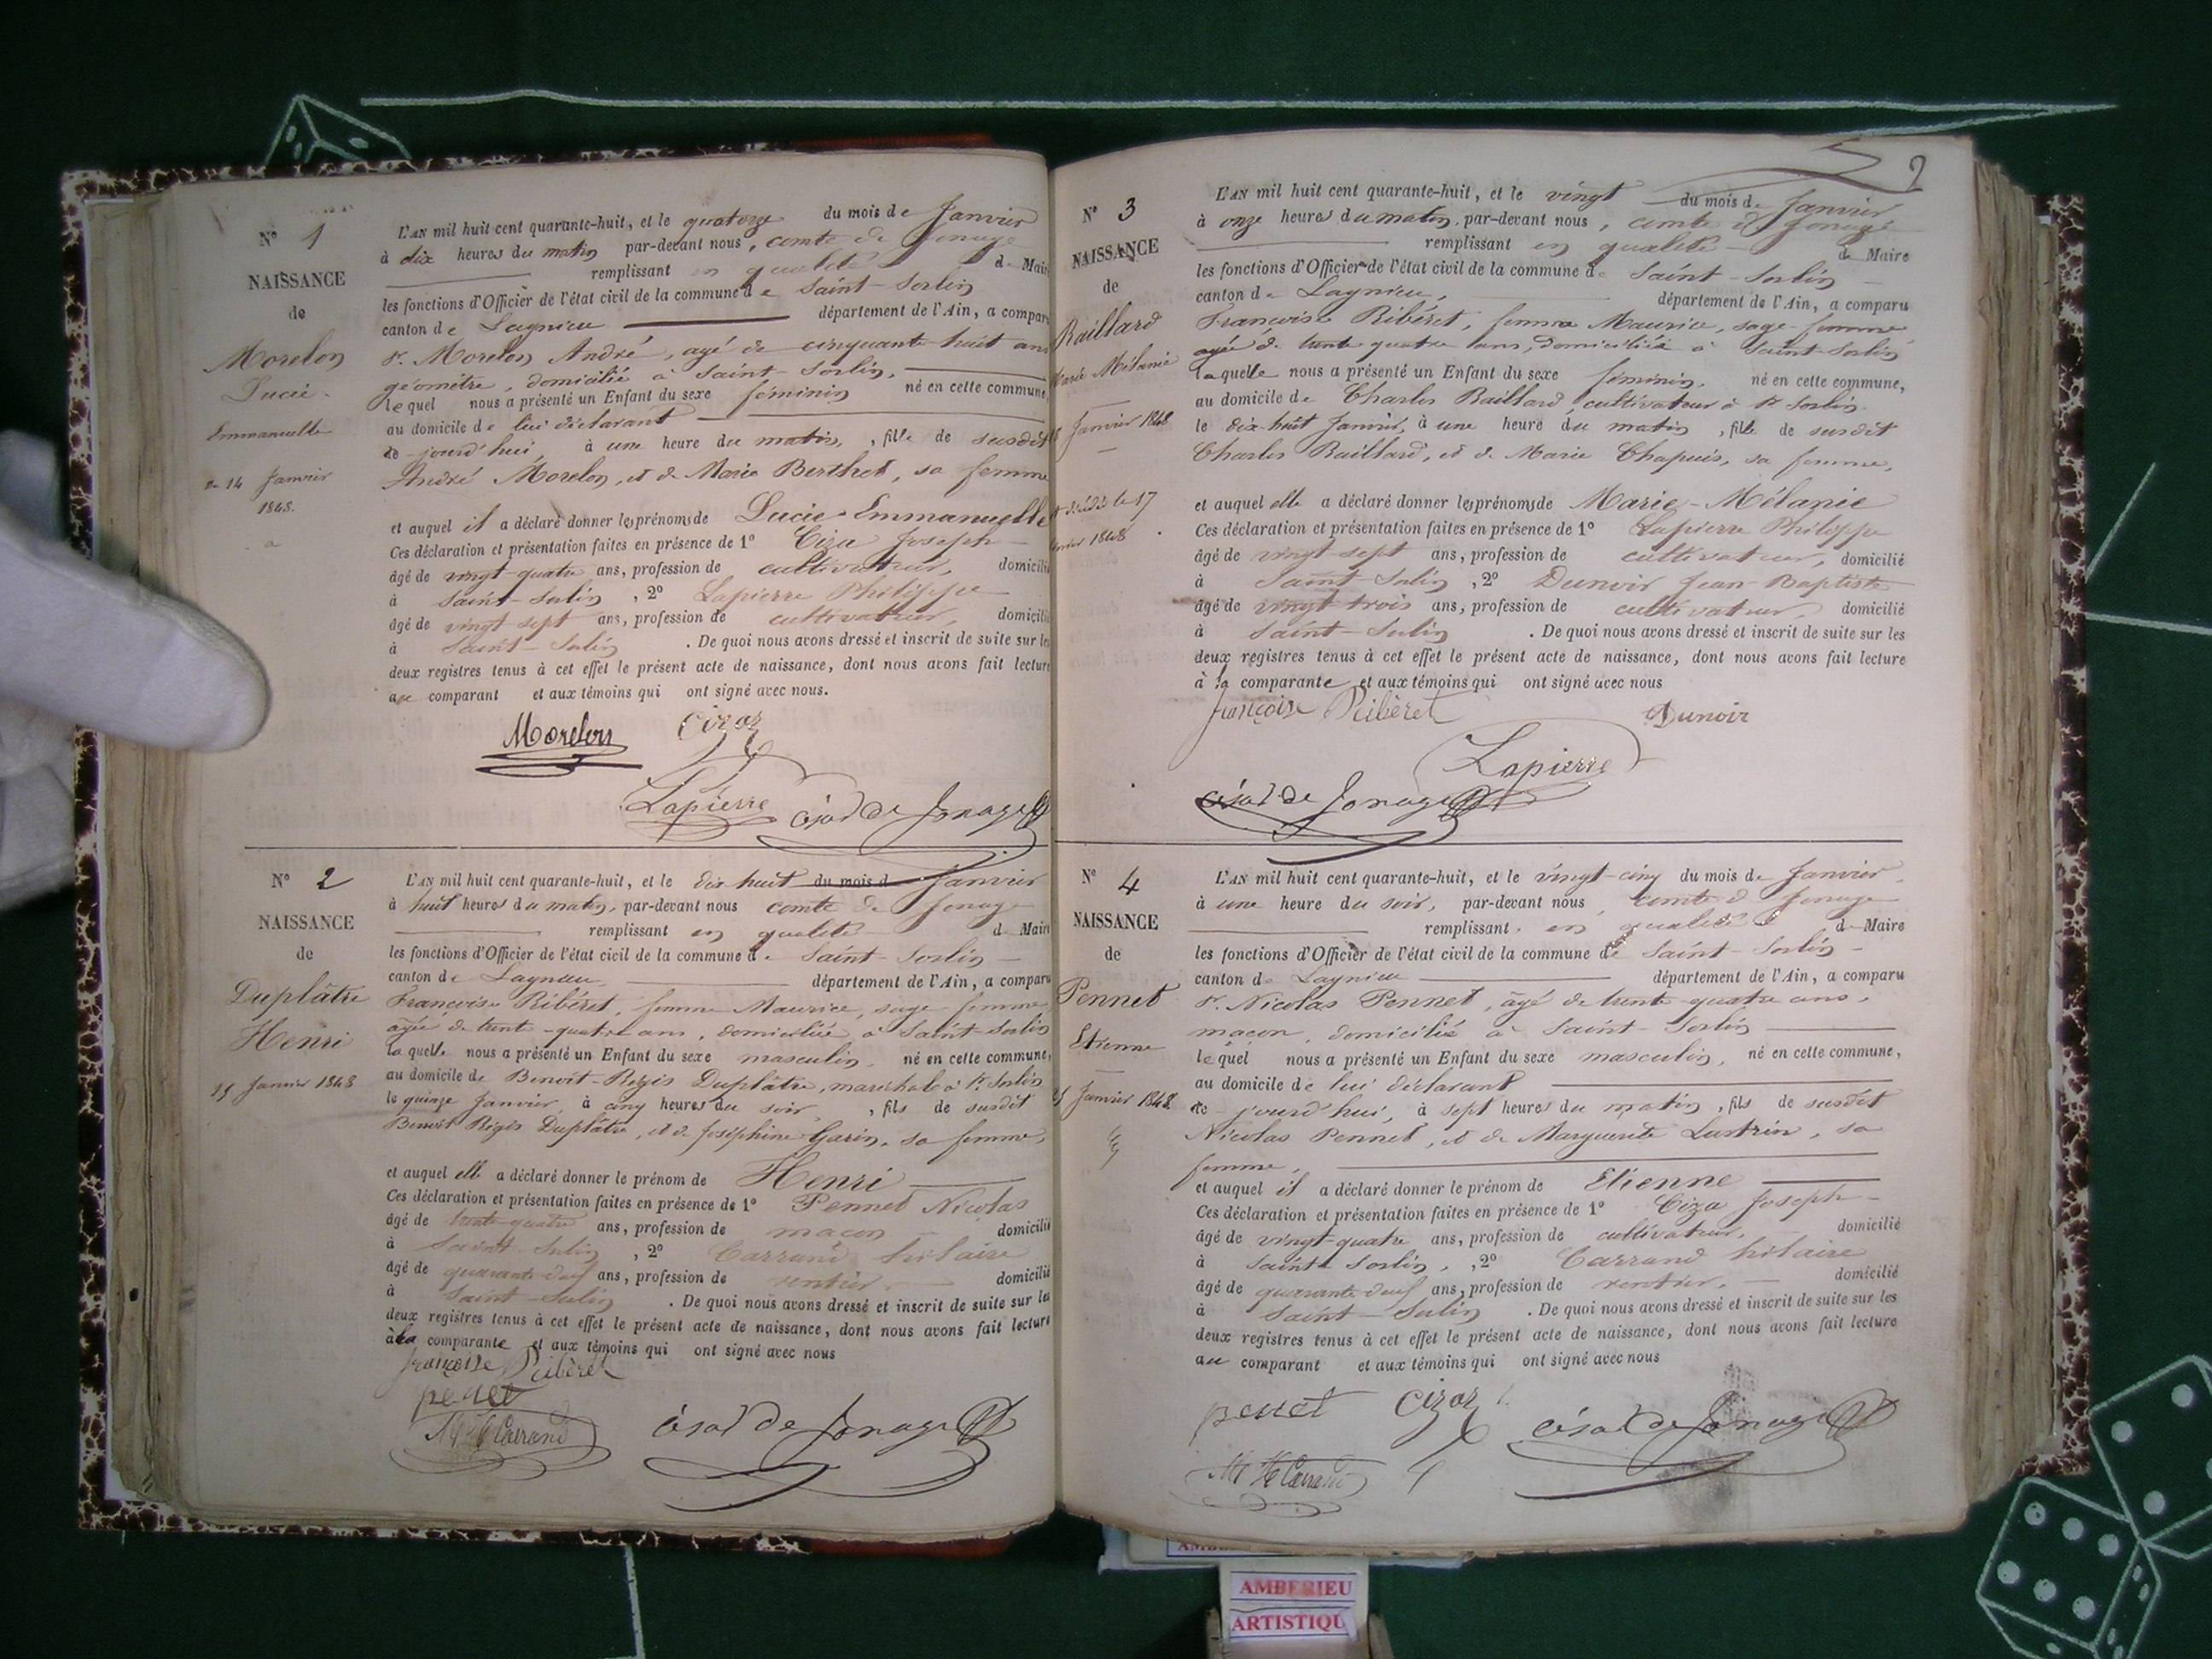 N° 1
NAISSANCE
de
Morelon
Lucie
Emmanuelle
14 Janvier
1848.
L'AN mil huit cent quarante-huit, et le quatorze du mois de Janvier
à dix heures du matin par-devant nous, comte de Jonage
remplissant en qualité de Maire
les fonctions d'Officier de l'état civil de la commune de Saint-Sorlin
canton de Lagnieu département de l'Ain, a comparu
sr. Morelon André, agé de cinquante-huit ans
géomètre, domicilié à Saint-Sorlin,
lequel nous a présenté un Enfant du sexe féminin né en cette commune,
au domicile de lui déclarant
ce jourd'hui, à une heure du matin, fille de susdit
André Morelon, et de Marie Berthet, sa femme
et auquel il a déclaré donner les prénoms de Lucie-Emmanuelle
Ces déclaration et présentation faites en présence de 1° Ciza Joseph
âgé de vingt-quatre ans, profession de cultivateur, domicilié
à Saint-Sulin, 2° Lapierre Philippe
âgé de vingt sept ans, profession de cultivateur, domicilié
à Saint-Sulin. De quoi nous avons dressé et inscrit de suite sur les
deux registres tenus à cet effet le présent acte de naissance, dont nous avons fait lecture
au comparant et aux témoins qui ont signé avec nous.
Morelon Cizaz
Lapierre César de Jonage
N° 2
NAISSANCE
de
Duplâtre
Henri
15 Janvier 1848
L'AN mil huit cent quarante-huit, et le dix huit du mois de Janvier
à huit heures du matin, par-devant nous comte de Jonage
remplissant en qualité de Maire
les fonctions d'Officier de l'état civil de la commune de Saint-Sorlin
canton de Lagnieu département de l'Ain, a comparu
Françoise Ribéret, femme Maurice, sage femme,
agée de trente-quatre ans, domiciliée à Saint Sorlin
laquelle nous a présenté un Enfant du sexe masculin, né en cette commune,
au domicile de Benoît-Régis Duplâtre, maréchal à St. Sorlin
le quinze Janvier, à cinq heures du soir, fils de susdit
Benoît Régis Duplâtre, et de Joséphine Garin, sa femme,
et auquel elle a déclaré donner le prénom de Henri
Ces déclaration et présentation faites en présence de 1° Pennet Nicolas
âgé de trente-quatre ans, profession de maçon domicilié
à Saint-Sulin, 2° Carrand hilaire
âgé de quarante-deuf ans, profession de rentier. domicilié
à Saint-Sulin. De quoi nous avons dressé et inscrit de suite sur les
deux registres tenus à cet effet le présent acte de naissance, dont nous avons fait lecture
à la comparante et aux témoins qui ont signé avec nous
françoise Ribéret
penet
Carrand César de Jonage
2
N° 3
NAISSANCE
de
Baillard
Marie Mélanie
18 Janvier 1848
décédée le 17
1848
L'AN mil huit cent quarante-huit, et le vingt du mois de Janvier
à onze heures du matin, par-devant nous, comte de Jonage
remplissant en qualité de Maire
les fonctions d'Officier de l'état civil de la commune de Saint-Sorlin
canton de Lagnieu, département de l'Ain, a comparu
Françoise Ribéret, femme Maurice, sage-femme
agée de trente quatre ans, domiciliée à Saint-Sorlin
laquelle nous a présenté un Enfant du sexe féminin, né en cette commune,
au domicile de Charles Baillard, cultivateur à St Sorlin
le dix-huit Janvier, à une heure du matin, fille de susdit
Charles Baillard, et de Marie Chapuis, sa femme,
et auquel elle a déclaré donner les prénoms de Marie-Mélanie
Ces déclaration et présentation faites en présence de 1° Lapierre Philippe
âgé de vingt-sept ans, profession de cultivateur, domicilié
à Saint-Sulin, 2° Dunoir Jean-Baptiste
âgé de vingt trois ans, profession de cultivateur, domicilié
à Saint-Sulin. De quoi nous avons dressé et inscrit de suite sur les
deux registres tenus à cet effet le présent acte de naissance, dont nous avons fait lecture
à la comparante et aux témoins qui ont signé avec nous
françoise Ribéret Dunoir
Lapierre
César de Jonage
N° 4
NAISSANCE
de
Pennet
Etienne
25 Janvier 1848.
L'AN mil huit cent quarante-huit, et le vingt-cinq du mois de Janvier
à une heure du soir, par-devant nous, comte de Jonage
remplissant en qualité de Maire
les fonctions d'Officier de l'état civil de la commune de Saint-Sorlin
canton de Lagnieu département de l'Ain, a comparu
sr. Nicolas Pennet, âgé de trente-quatre ans,
maçon, domicilié à Saint-Sorlin
lequel nous a présenté un Enfant du sexe masculin, né en cette commune,
au domicile de lui déclarant
ce jourd'hui, à sept heures du matin, fils de susdit
Nicolas Pennet, et de Marguerite Lustrin, sa
femme,
et auquel il a déclaré donner le prénom de Etienne
Ces déclaration et présentation faites en présence de 1° Ciza Joseph
âgé de vingt-quatre ans, profession de cultivateur, domicilié
à Saint-Sorlin, 2° Carrand hilaire
âgé de quarante deuf ans, profession de rentier, domicilié
à Saint-Sulin. De quoi nous avons dressé et inscrit de suite sur les
deux registres tenus à cet effet le présent acte de naissance, dont nous avons fait lecture
au comparant et aux témoins qui ont signé avec nous
penet Cizaz César de Jonage
Carrand
AMBERIEU
ARTISTIQU